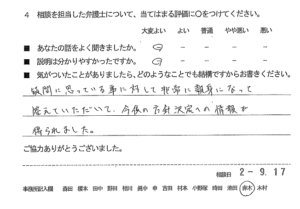 4 相談を担当した弁護士について、当てはまる評価に○をつけてください。
大変よい よい 普通 やや悪い 悪い
■ あなたの話をよく聞きましたか。
■ 説明は分かりやすかったですか。
■ 気がついたことがありましたら、どのようなことでも結構ですからお書きください。
質問に思っている事に対して非常に親身になって
答えていただいて、今後の方針決定への情報が
得られました。
ご協力ありがとうございました。
相談日 2-9.17
事務所記入欄 田中 吉田 村本 小野塚 池田 鈴木 木村